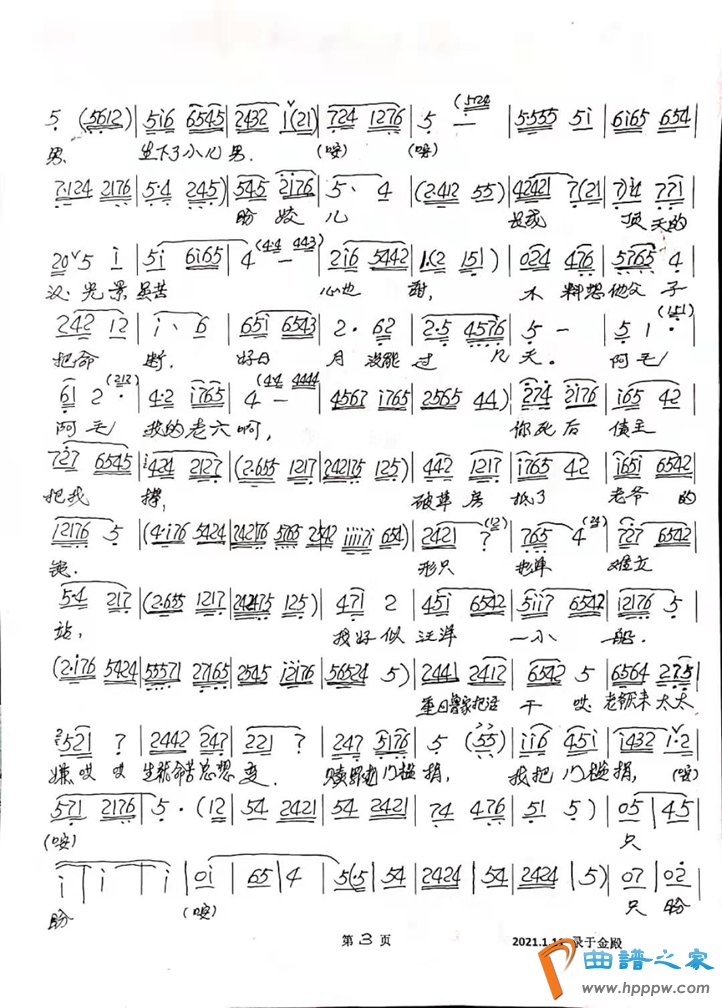 5 (5612) | 5i6 6545 | 2432 i(21) | 724 1276 | 5 — (5724 | 5·555 5i | 6i65 654 |
男, 生下了小儿男. (唉) (唉)
7·124 2176 | 5·4 245) | 545 2176 | 5、 4 | (2412 55) | 42421 7(21 | 7)i4 771 |
盼 姣 儿 长成 顶 天的
20 5 i | 5i 6i65 | 4 — (44 443) | 2i6 5442 | 1.(2 151) | 024 476 | 5765 4 |
汉. 光景虽苦 心也 甜, 不 料想他父 子
242 12 | i、 6 | 65i 6543 | 2· 62 | 2·5 4576 | 5 — | 5 1· (151)
把命 断. 好日 月 没能 过 几 天。 阿毛
6i 2· (212) | 4·2 i765 | 4 — (44 4444 | 4567 i765 | 2565 44) | 274 2176 | i65 42 |
阿毛 我的老六啊, 你死后 债主
727 6545 | i424 2127 | (2·655 1217 | 242175 125) | 442 1217 | i765 42 | i651 6542 |
把我 撵, 破草房 抵了 老爷 的
12176 5 | (4·i76 5424 | 242176 5765 2542 iiii7i 654) | 2421 7 (12) | 765 4 (24) | 727 6542 |
钱. 形只 影单 难立
5·4 217 | (2·655 1217 | 242475 125) | 471 2 | 45i 6542 | 5ii7 6542 | i2176 5 |
站, 我好似 汪洋 一小 船.
(2·i76 5424 | 55571 27165 | 2545 i2i76 | 56524 5) | 2441 2412 | 6542 5 | 6564 275 |
重回鲁家把活 干 哎. 老爷太太
521 7 | 2442 247 | 221 7 | 247 5176 | 5 (55) | ii6 45i | i432 i·2 |
嫌 哎 哎 生 命苦思想变. 赎罪 门槛捐, 我把 门槛捐, (唉)
571 2176 | 5· (12 | 54 2421 | 54 2421 | 74 476 | 51 5) | 05 | 45 |
(唉) 只
i | i | i | 0i | 65 | 4 | 5(·5 | 54 | 2424 | 54 | 2424 | 5) | 07 | 02 |
盼 (唉) 只 盼
第 3 页
2021.1.1 录于金殿
曲谱之家
www.hppw.com